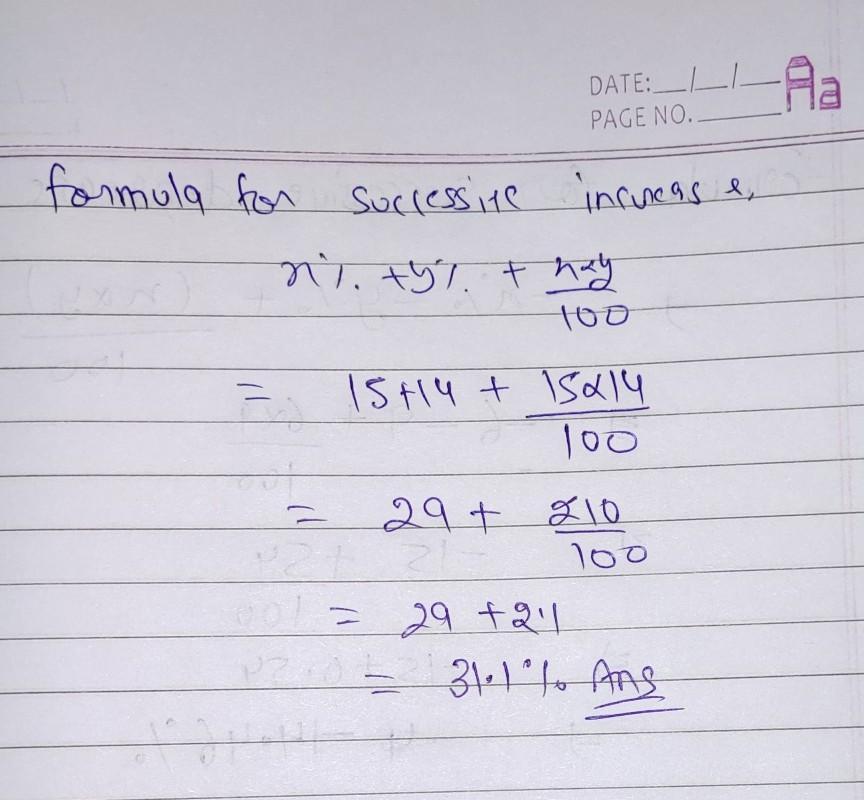 DATE: __/__/__
PAGE NO. ____
Aa
formula for successive increase,
x% + y% + x×y/100
= 15+14 + 15×14/100
= 29 + 210/100
= 29 + 2.1
= 31.1% Ans